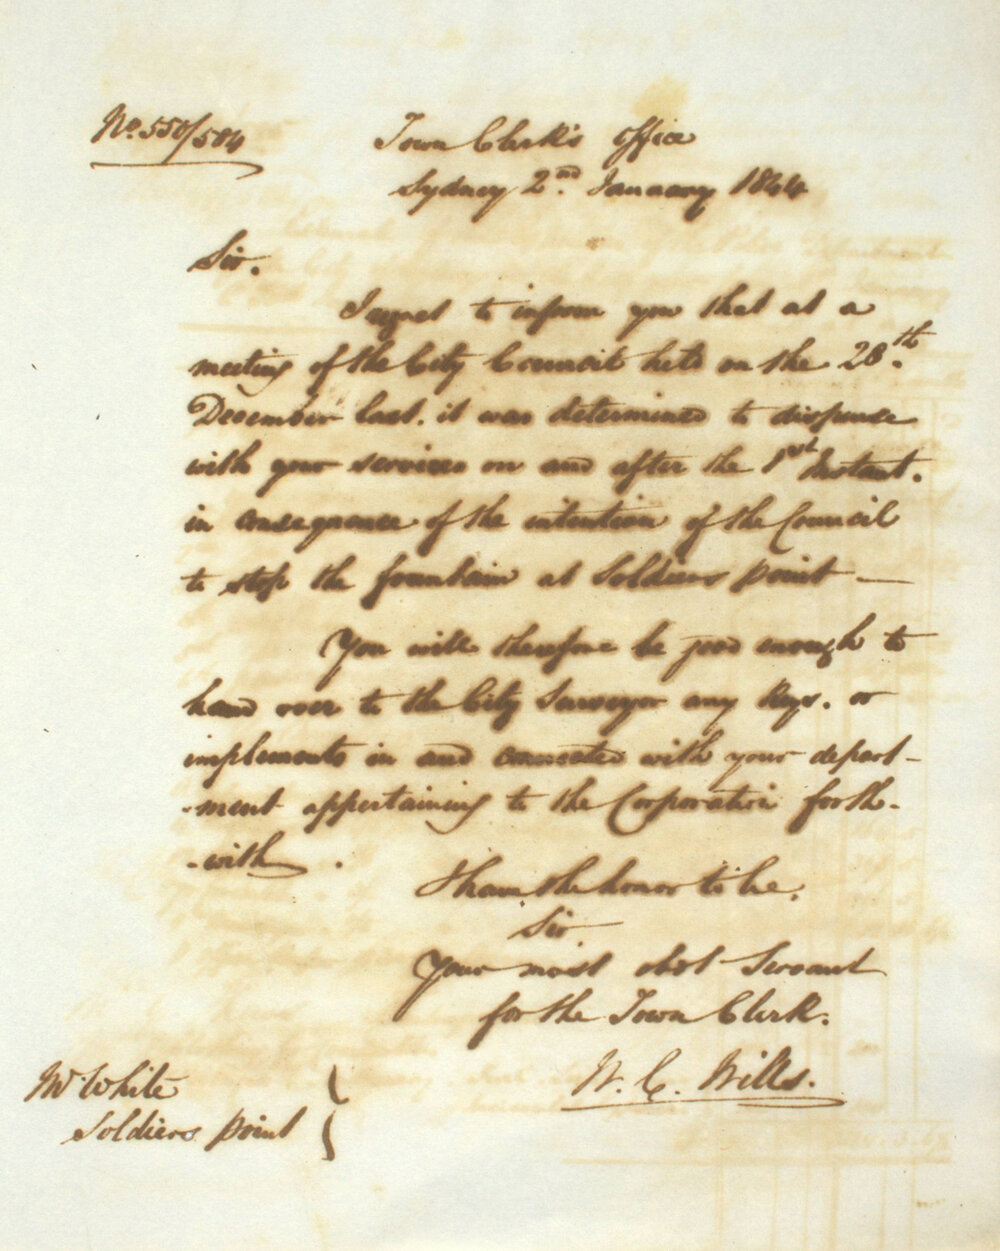 No. 550/504
Town Clerk's Office
Sydney 2nd January 1844
Sir.
I regret to inform you that at a
meeting of the City Council held on the 28th.
December last. it was determined to dispense
with your services on and after the 1st Instant.
in consequence of the intention of the Council
to stop the fountain at Soldiers point —
You will therefore be good enough to
hand over to the City Surveyor any Keys. or
implements in and connected with your depart-
-ment appertaining to the Corporation forth-
-with.
I have the honor to be,
Sir
Your most obdt Servant
for the Town Clerk.
W. C. Wills.
Mr White
Soldiers point